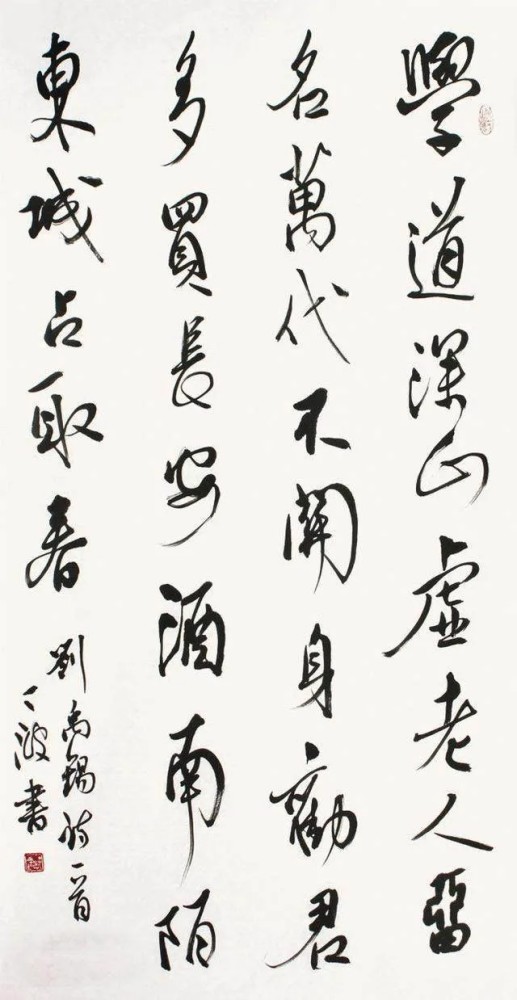 學道深山虛老人留
名萬代不關身勸君
多買長安酒南陌
東城占取春
劉禹錫詩一首
波書